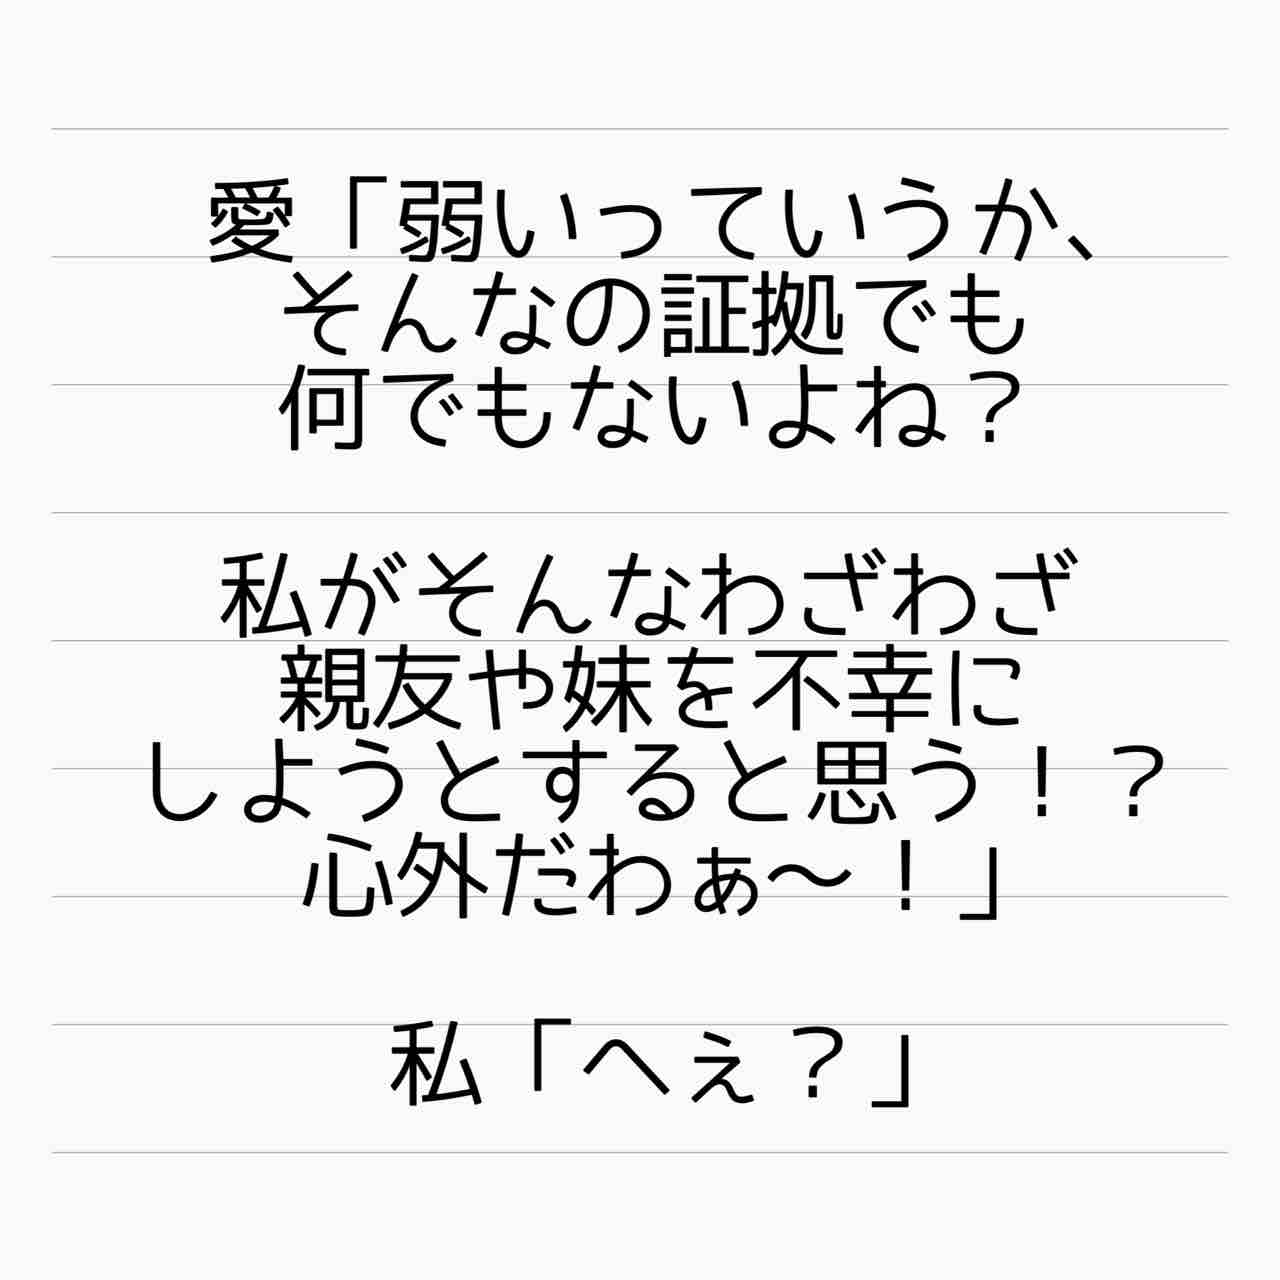 愛「弱いっていうか、
そんなの証拠でも
何でもないよね？
私がそんなわざわざ
親友や妹を不幸に
しようとすると思う！？
心外だわぁ〜！」
私「へぇ？」